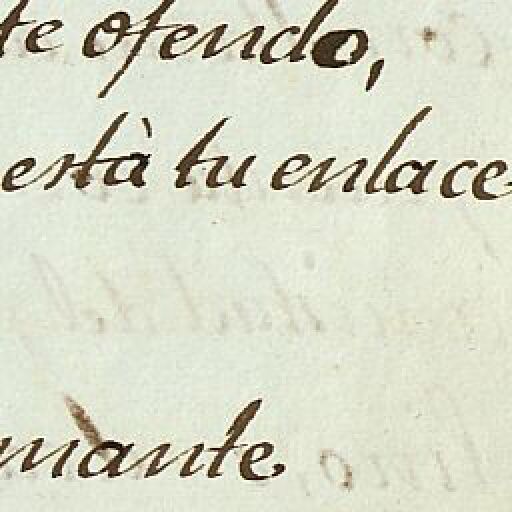 te ofendo,
està tu enlace
mante.